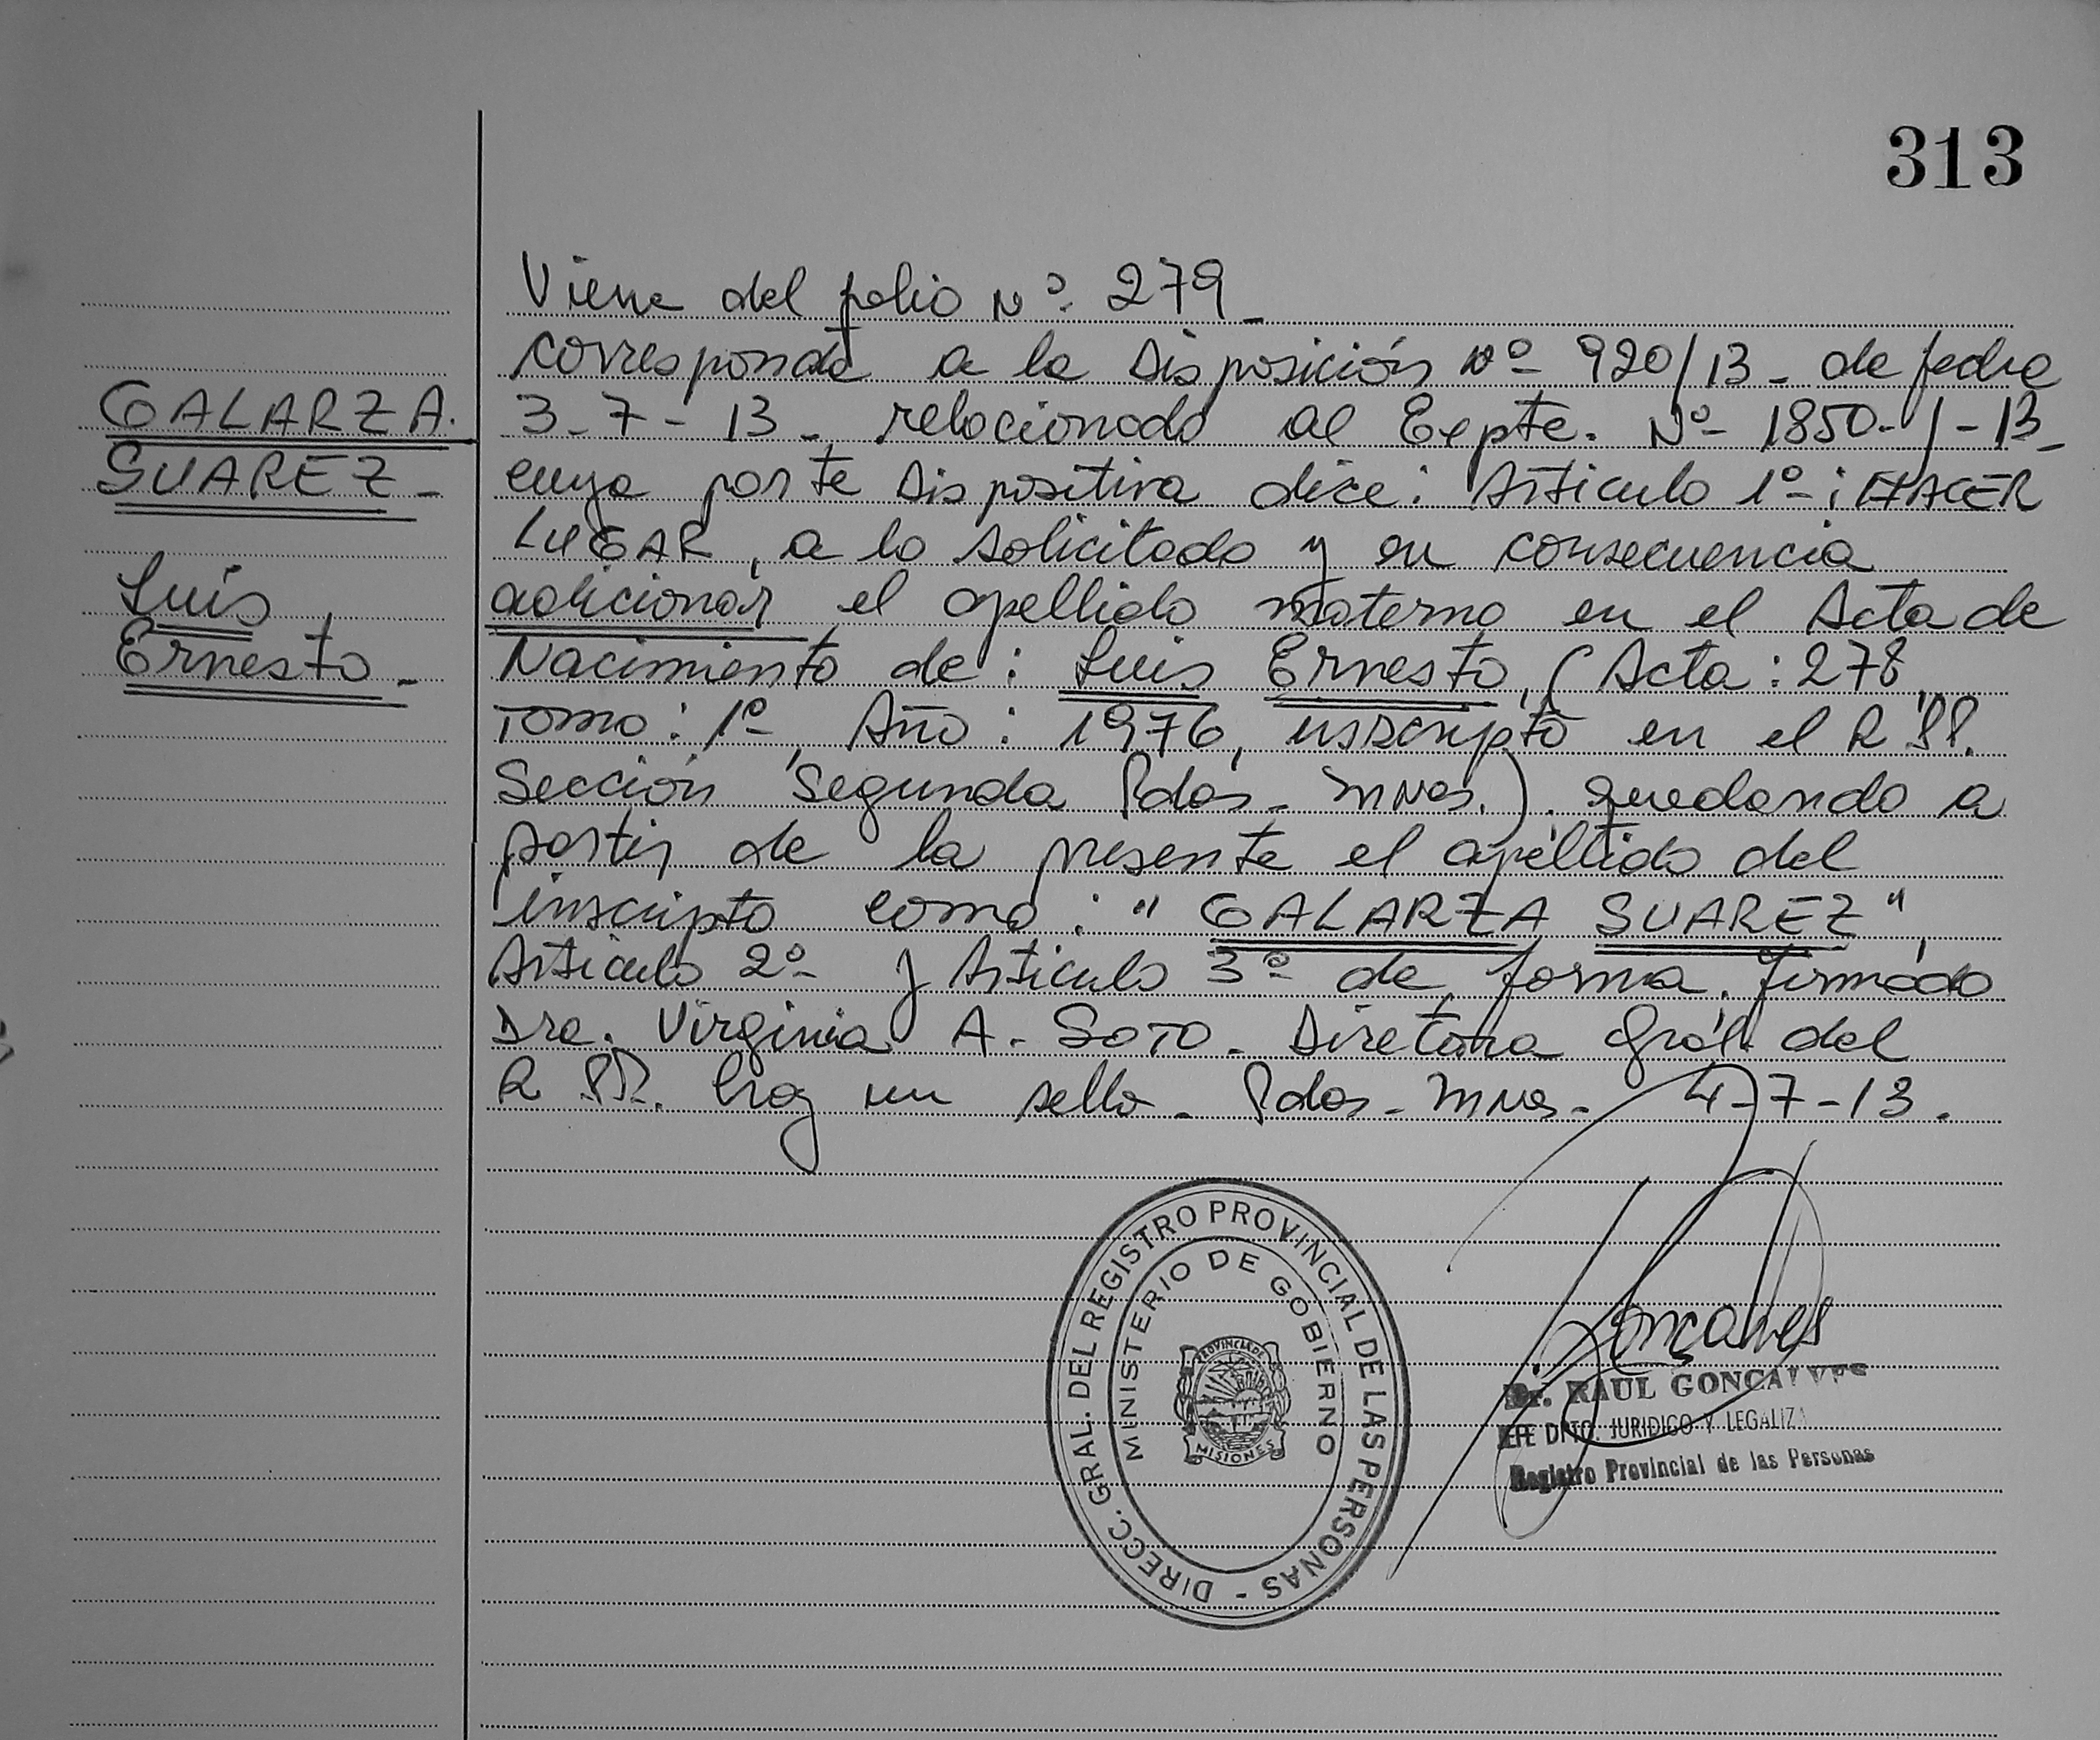 313
Viene del folio Nº 279_
corresponde a la Disposición Nº 920/13_ de fecha
3_7_13_, relacionado al Expte. Nº 1850-J-13_
cuya parte Dispositiva dice: Articulo 1º: HACER
LUGAR, a lo solicitado y en consecuencia
adicionar el apellido materno en el Acta de
Nacimiento de: Luis Ernesto, (Acta: 278,
Tomo: 1º, Año: 1976, inscripto en el R.PP.
Sección Segunda Pdas. Mnes.). quedando a
partir de la presente el apellido del
inscripto como: "GALARZA SUAREZ",
Articulo 2º y Articulo 3º de forma. firmado
Dra. Virginia A. SOTO. Diretora Gral. del
R.PP. hay un sello. Pdas. Mnes. 4-7-13.
GALARZA.
SUAREZ_
Luis
Ernesto_
DIRECC. GRAL. DEL REGISTRO PROVINCIAL DE LAS PERSONAS -
MINISTERIO DE GOBIERNO
PROVINCIA DE
MISIONES
Goncalves
Dr. RAUL GONCALVES
JEFE DPTO. JURIDICO Y LEGALIZA
Registro Provincial de las Personas